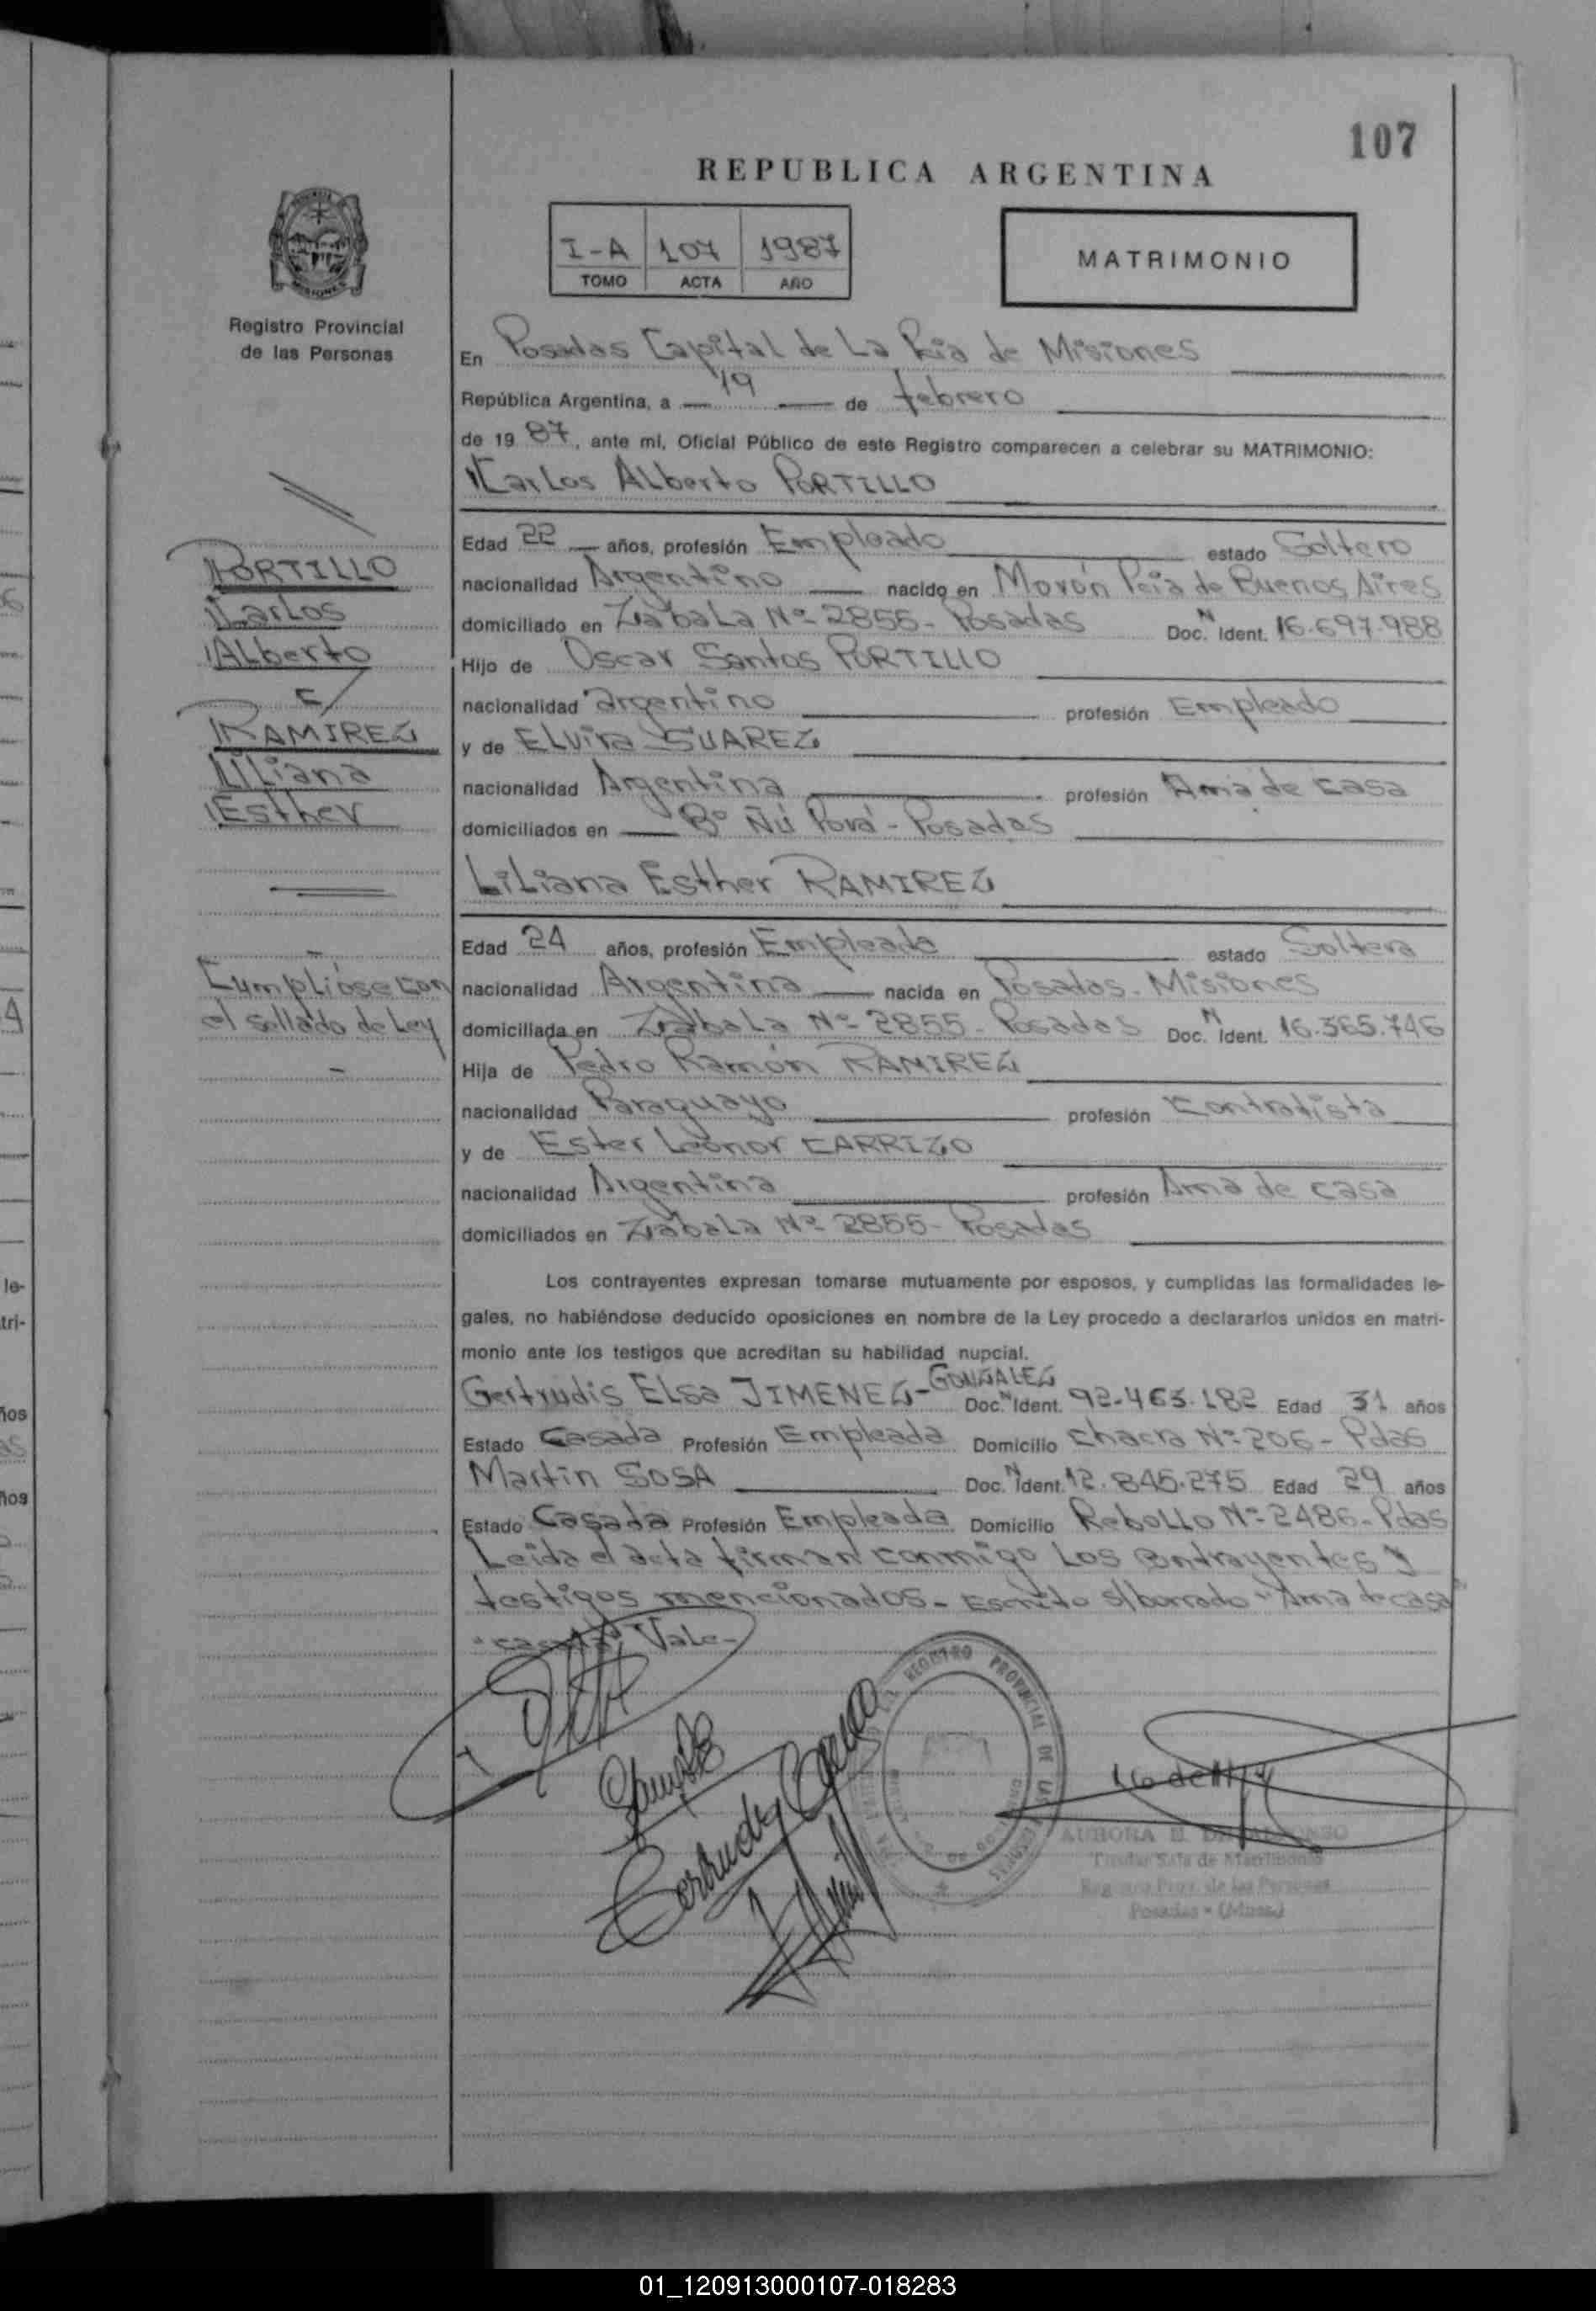 107
REPUBLICA ARGENTINA
I-A 107 1987
TOMO ACTA AÑO
MATRIMONIO
Registro Provincial
de las Personas
En Posadas Capital de La Pcia de Misiones
República Argentina, a 19 de febrero
de 19 87, ante mí, Oficial Público de este Registro comparecen a celebrar su MATRIMONIO:
Carlos Alberto PORTILLO
Edad 22 años, profesión Empleado estado Soltero
nacionalidad Argentino nacido en Morón Pcia de Buenos Aires
domiciliado en Zabala Nº 2855 - Posadas Doc. N Ident. 16.697.988
Hijo de Oscar Santos PORTILLO
nacionalidad argentino profesión Empleado
y de Elvira SUAREZ
nacionalidad Argentina profesión Ama de casa
domiciliados en Bº Ñú Porá - Posadas
Liliana Esther RAMIREZ
Edad 24 años, profesión Empleada estado Soltera
nacionalidad Argentina nacida en Posadas - Misiones
domiciliada en Zabala Nº 2855 - Posadas Doc. N Ident. 16.365.746
Hija de Pedro Ramón RAMIREZ
nacionalidad Paraguayo profesión Contratista
y de Ester Leonor CARRIZO
nacionalidad Argentina profesión Ama de casa
domiciliados en Zabala Nº 2855 - Posadas
Los contrayentes expresan tomarse mutuamente por esposos, y cumplidas las formalidades le-
gales, no habiéndose deducido oposiciones en nombre de la Ley procedo a declararlos unidos en matri-
monio ante los testigos que acreditan su habilidad nupcial.
Gertrudis Elsa JIMENEZ - GONZALEZ Doc. N Ident. 92.463.182 Edad 31 años
Estado Casada Profesión Empleada Domicilio Chacra Nº 206 - Pdas
Martin SOSA Doc. N Ident. 12.845.275 Edad 29 años
Estado Casada Profesión Empleada Domicilio Rebollo Nº 2486 - Pdas
Leida el acta firman conmigo los contrayentes y
testigos mencionados - Escrito s/borrado "Ama de casa"
"casada" Vale -
PORTILLO
Carlos
Alberto
c/
RAMIREZ
Liliana
Esther
Cumplióse con
el sellado de Ley
REGISTRO PROVINCIAL DE LAS PERSONAS
Titular Sala de Matrimonio
Registro Prov. de las Personas
Posadas - (Mnes.)
01_120913000107-018283